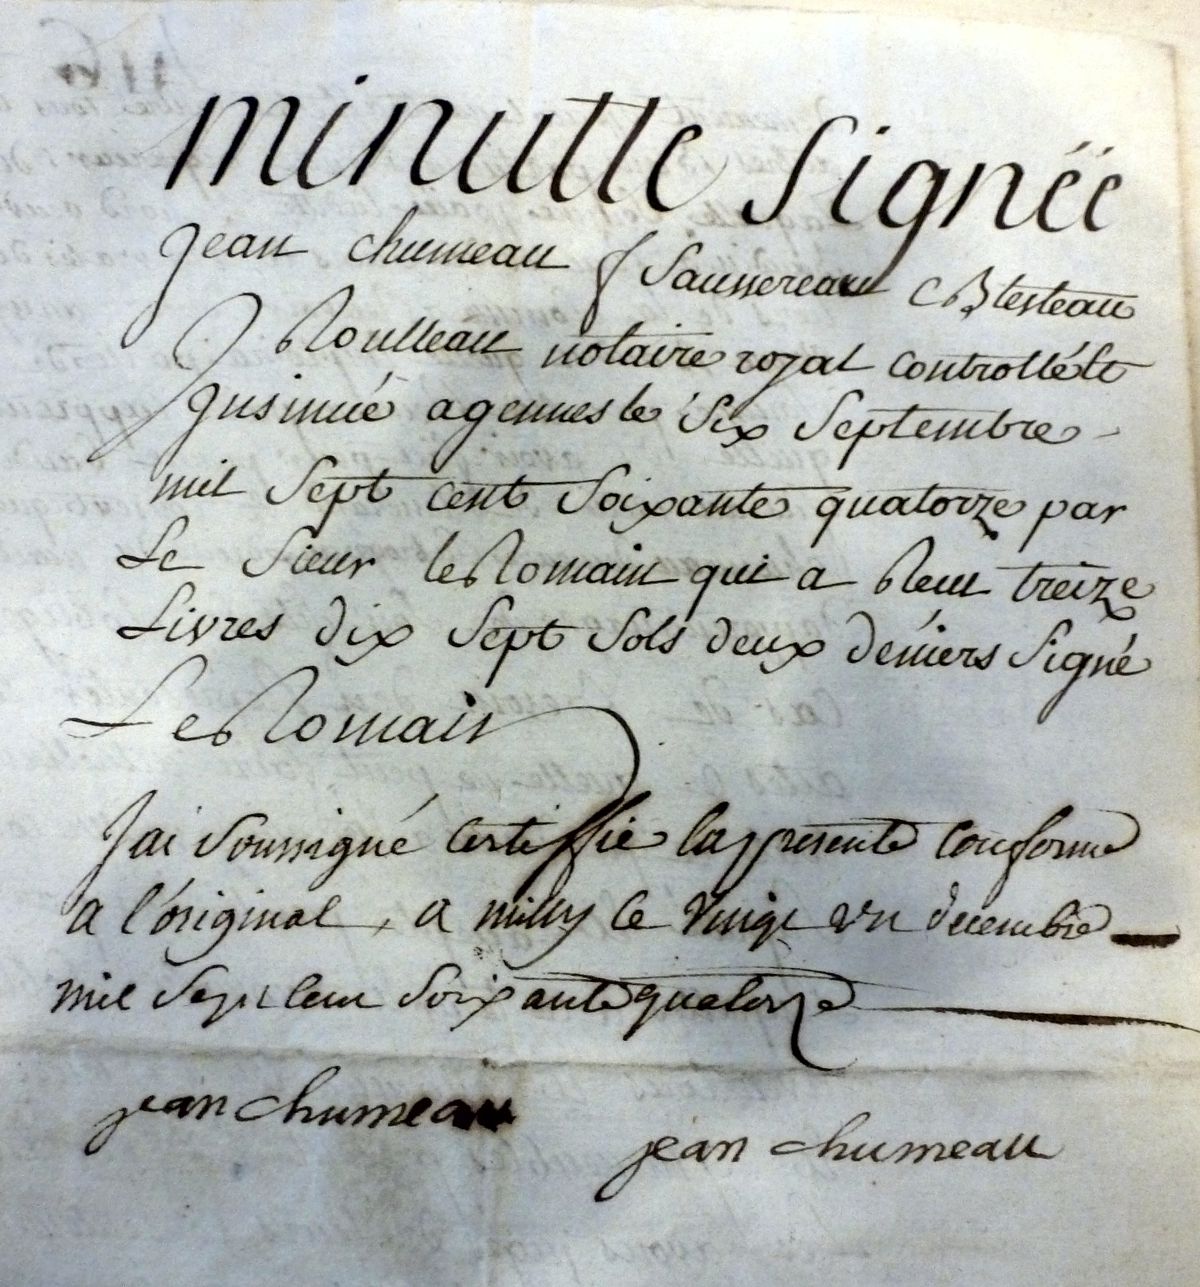 minutte Signée
jean chumeau f Saussereau C Btesteau
J Roulleau notaire royal controllé et
Insinué a gennes le Six Septembre
mil Sept cent Soixante quatorze par
Le Sieur le Romain qui a Reçu treize
Livres dix Sept Sols deux deniers Signé
Le Romain
Jai Soussigné certiffie la presente conforme
a l'original, a milly le vingt un decembre
mil Sept cent Soixante quatorze
jean chumeau
jean chumeau